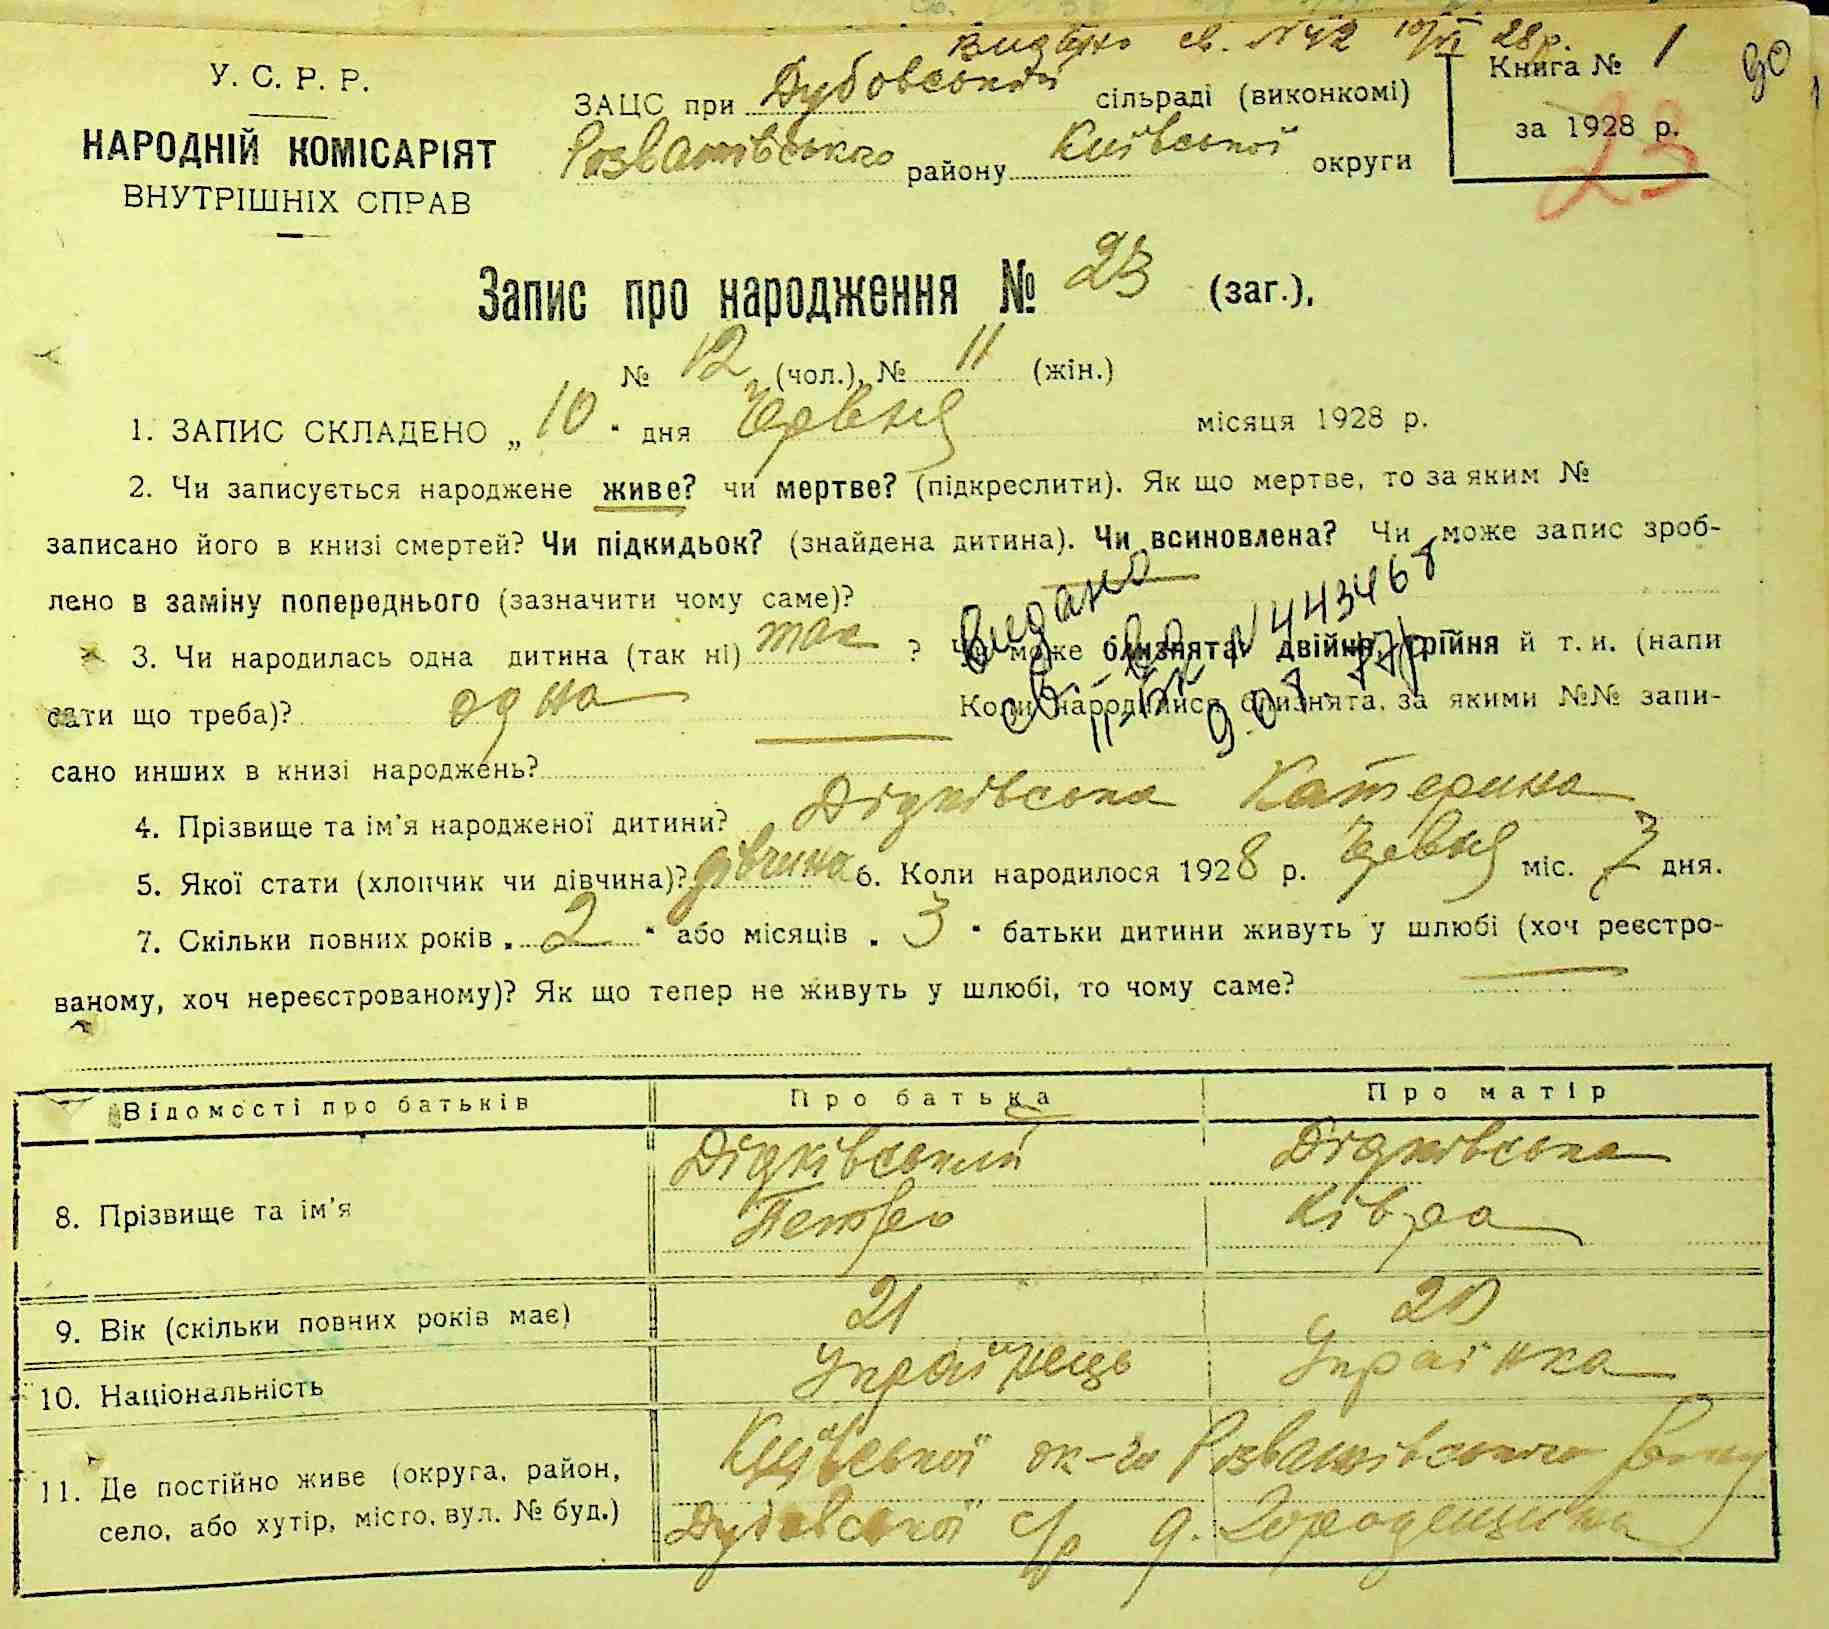 Видано св. №42 10/VI 28р.
У. С. Р. Р.
НАРОДНІЙ КОМІСАРІЯТ
ВНУТРІШНІХ СПРАВ
ЗАЦС при Дубовській сільраді (виконкомі)
Розважівського району Київської округи
Книга № 1
за 1928 р.
90
23
Запис про народження № 23 (заг.),
№ 12 (чол.), № 11 (жін.)
1. ЗАПИС СКЛАДЕНО „ 10 " дня Червня місяця 1928 р.
2. Чи записується народжене живе? чи мертве? (підкреслити). Як що мертве, то за яким №
записано його в книзі смертей? Чи підкидьок? (знайдена дитина). Чи всиновлена? Чи може запис зроб-
лено в заміну попереднього (зазначити чому саме)?
Видано
св-во №443468
3. Чи народилась одна дитина (так ні) так ? Чи може близнята, двійня, трійня й т. и. (напи
сати що треба)? одна Коли народилися близнята, за якими №№ запи-
сано инших в книзі народжень?
4. Прізвище та ім'я народженої дитини? Дідківська Катерина
5. Якої стати (хлопчик чи дівчина)? дівчина 6. Коли народилося 1928 р. Червня міс. 7 дня.
7. Скільки повних років „ 2 " або місяців „ 3 " батьки дитини живуть у шлюбі (хоч реєстро-
ваному, хоч нереєстрованому)? Як що тепер не живуть у шлюбі, то чому саме?
Відомості про батьків Про батька Про матір
8. Прізвище та ім'я Дідківський Дідківська
Петро
9. Вік (скільки повних років має) 21 20
10. Національність Українець Українка
11. Де постійно живе (округа, район, Київської ок-ги Розважівського р-ну
село, або хутір, місто, вул. № буд.) Дубовської с/р д. Городещина